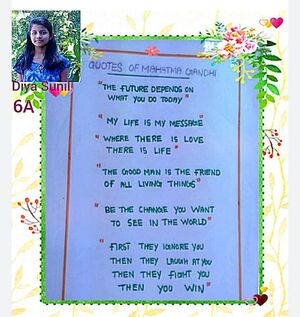 Diya Sunil
6A
QUOTES OF MAHATMA GANDHI
"THE FUTURE DEPENDS ON
WHAT YOU DO TODAY"
"MY LIFE IS MY MESSAGE"
"WHERE THERE IS LOVE
THERE IS LIFE"
"THE GOOD MAN IS THE FRIEND
OF ALL LIVING THINGS"
"BE THE CHANGE YOU WANT
TO SEE IN THE WORLD"
"FIRST THEY IGNORE YOU
THEN THEY LAUGH AT YOU
THEN THEY FIGHT YOU
THEN YOU WIN"